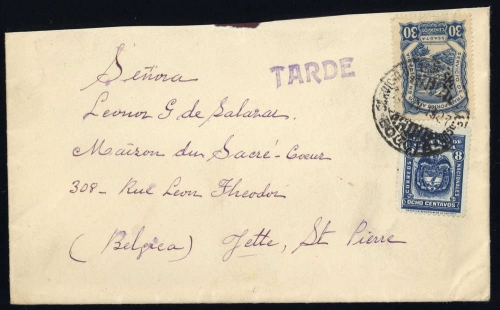 TARDE
Señora
Leonor G de Salazar
Maison du Sacré-Coeur
308- Rue Leon Theodor
(Belgica) Jette, St Pierre
30 30
SERVICIO DE TRANSPORTES
CORREOS NACIONALES
8
OCHO CENTAVOS